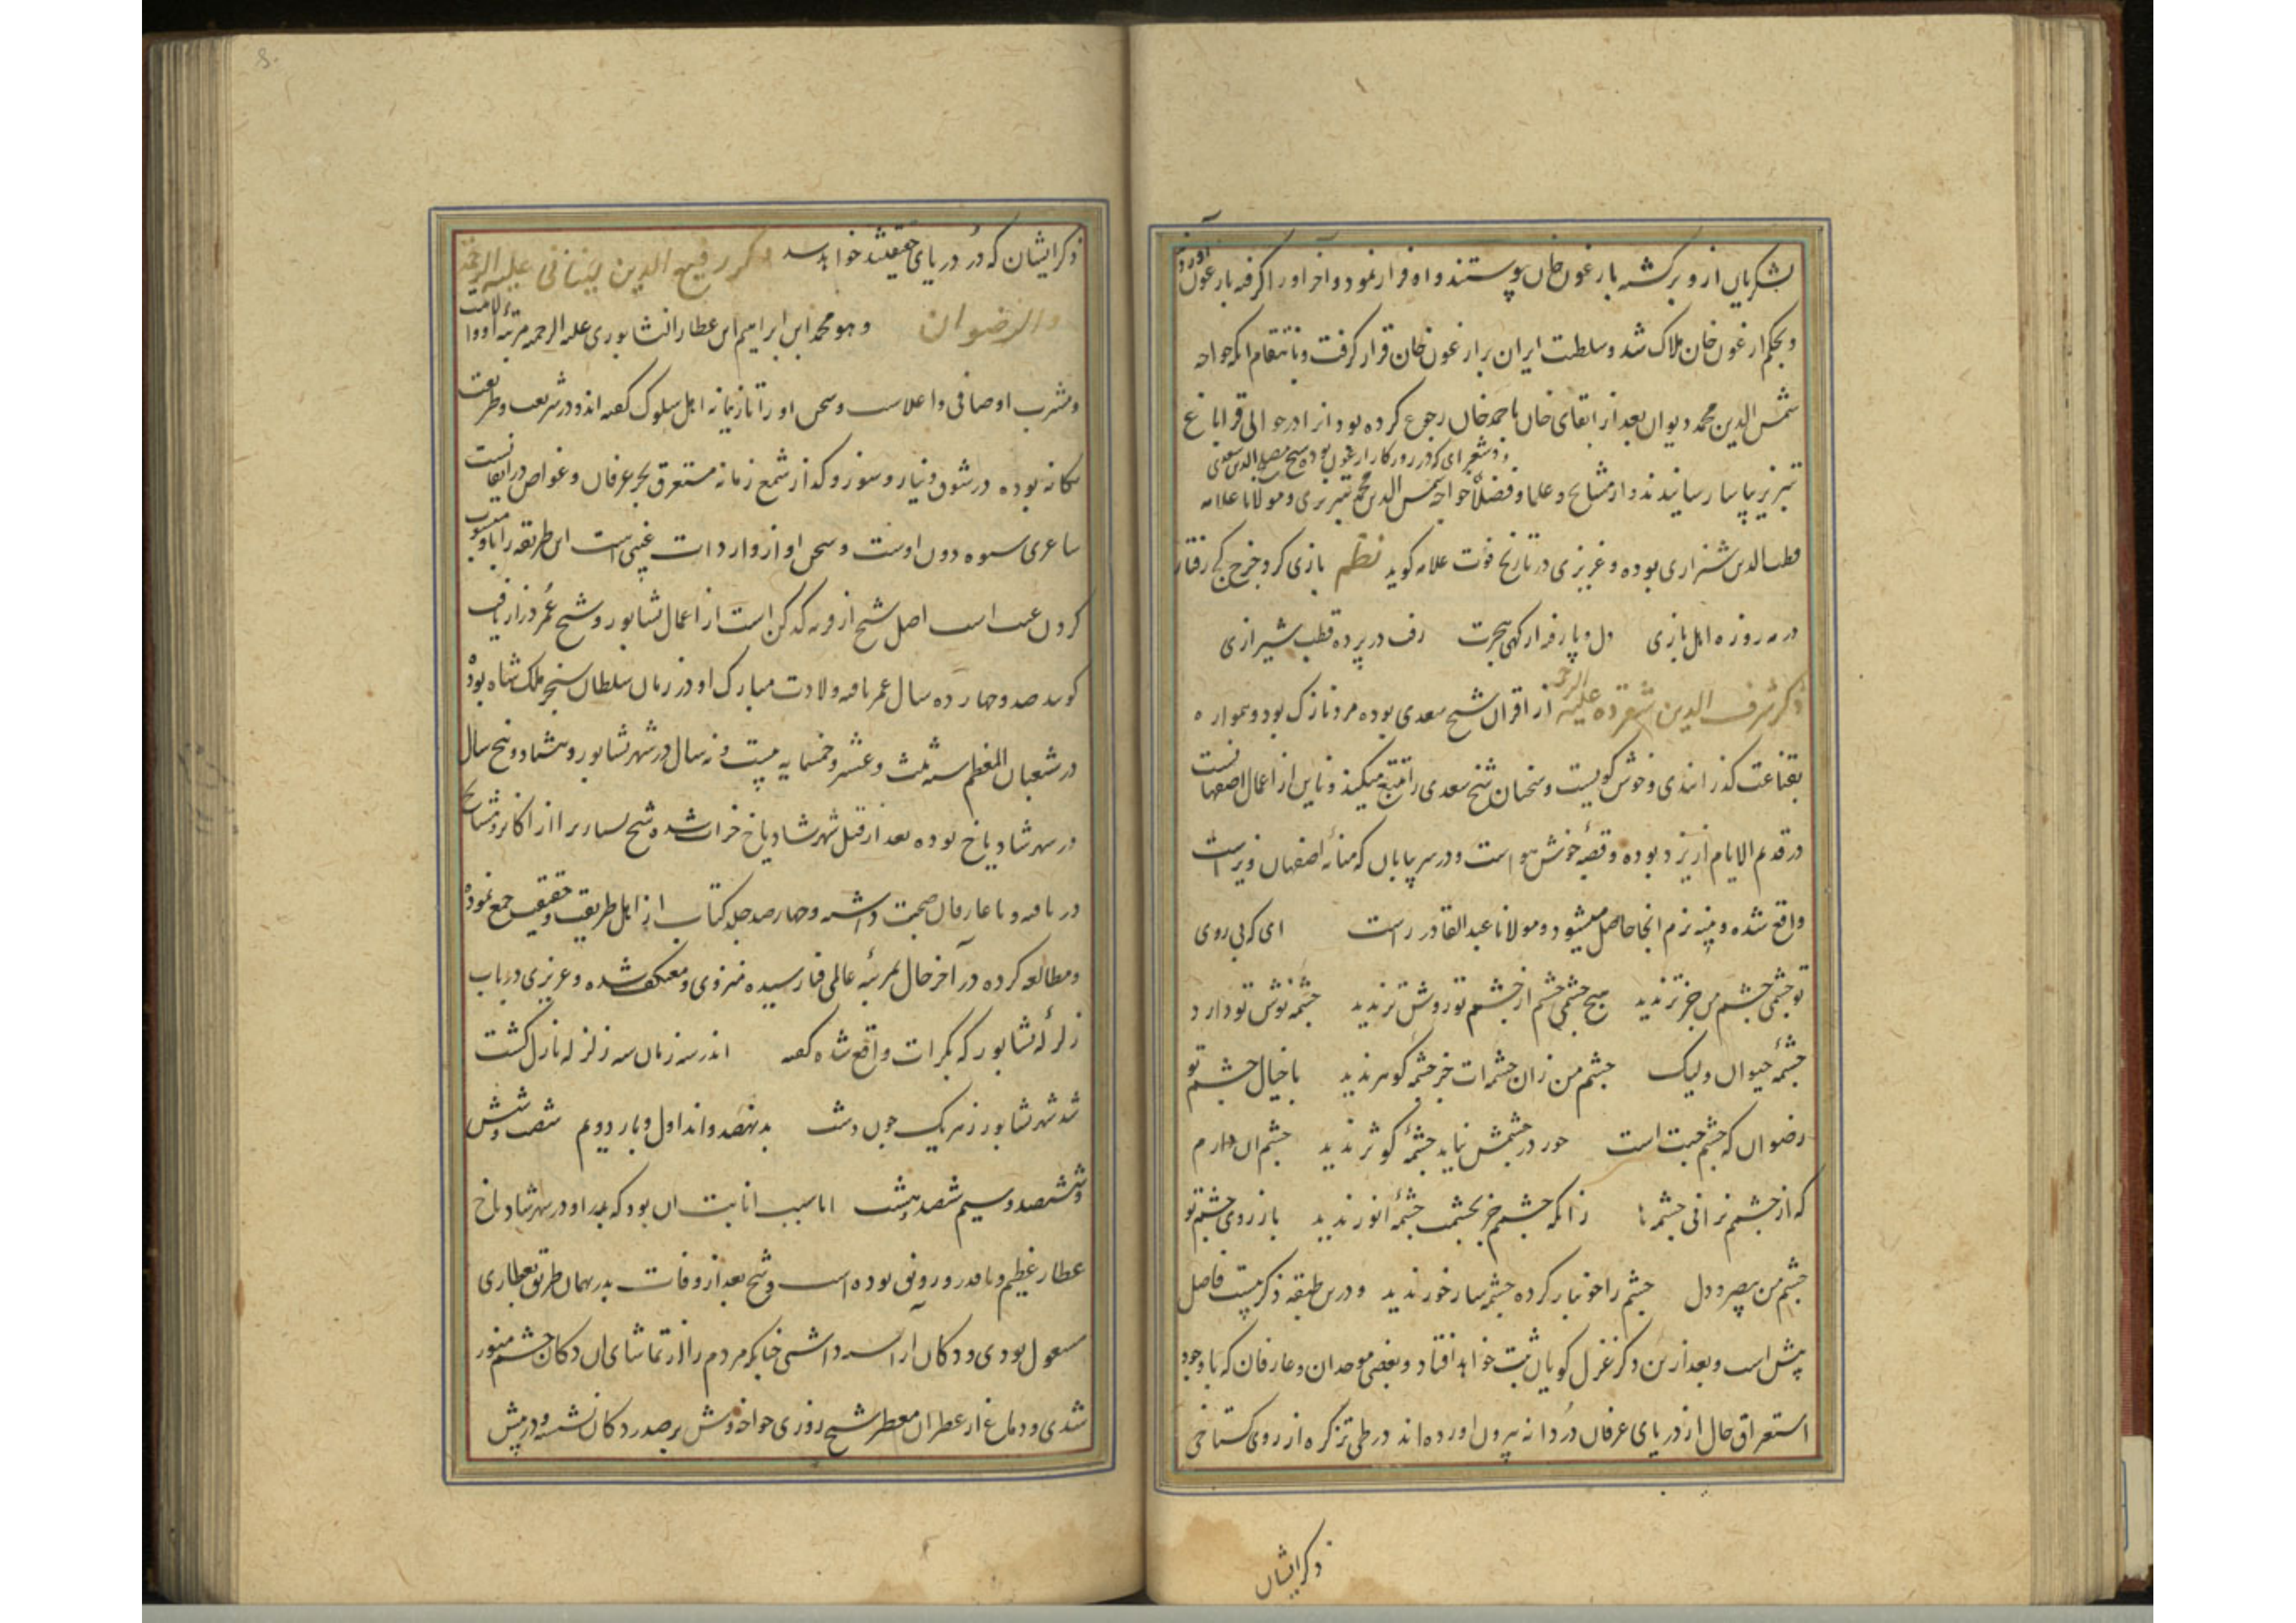 لشکریان ازو برگشته بارغون خان پیوستند و او فرار نمود و آخر او را گرفته بارغون آوردند
و بحکم ارغون خان هلاک شد و سلطنت ایران بر ارغون خان قرار گرفت و بانتقام انکه خواجه
شمس الدین محمد دیوان بعد از ابقای خان باحمد خان رجوع کرده بود انرا در حوالی قراباغ
و شعرای که در روزکار ارغون بوده شیخ مصلح الدین سعدی
تبریز بیاسا رسانیدند و از مشایخ و علما و فضلا خواجه شمس الدین محمد تبریزی و مولانا علامه
قطب الدین شیرازی بوده و عزیزی در تاریخ فوت علامه کوید نظم بازی کرد چرخ کج رفتار
در مه روزه رفت در پرده قطب شیرازی
ذکر شرف الدین علیه الرحمه از اقران شیخ سعدی بوده مرد نازک بود و همواره
بقناعت کذرانیدی و خوش کویست و سخنان شیخ سعدی را تتبع میکند و نایین از اعمال اصفهانست
در قدیم الایام از یزد بوده و قصبه خوش هواست و در سر بیابان که میانه اصفهان و یزد است
واقع شده و پنبه نرم انجا حاصل میشود و مولانا عبد القادر راست ای که بی روی
تو چشمی چشم من جز تر ندید هیچ چشمی چشم از چشم تو روشن تر ندید چشمه نوش تو دارد
چشمه حیوان ولیک چشم من زان چشمه‌ات جز چشمه کوهر ندید با خیال چشم تو
رضوان که چشم جنت است حور در چشمش نیاید چشمه کوثر ندید چشم ان دارم
که از چشمم نرانی چشمه ها زانکه چشمم جز بچشمت چشمه انور ندید باز روی چشم تو
چشم من بیصر و دل چشم را خونبار کرده چشمه سار خور ندید و درین طبقه ذکر بیست فاضل
پیش است و بعد ازین ذکر غزل کویان ثبت خواهد افتاد و بعضی موحدان و عارفان که با وجود
استغراق حال از دریای عرفان دُردانه بیرون اورده اند در طی تذکره از روی کستاخی
ذکر ایشان
ذکر ایشان که دُر دریای حقیقتند خواهد شد ذکر رفیع الدین لبنانی علیه الرحمة
والرضوان و هو محمد ابن ابراهیم ابن عطار النشابوری علیه الرحمه مرتبه او والاست
و مشرب او صافی و اعلاست و سخن او را تازیانه اهل سلوک کفته اند و در شریعت و طریقت
یکانه بوده در شوق و نیاز و سوز و کداز شمع زمانه مستغرق بحر عرفان و غواص دریای ایقانست
شاعری شیوه دون اوست و سخن او از واردات غیبی است این طریقه را باو منسوب
کردن عیب است اصل شیخ از قریه کدکن است از اعمال نشابور و شیخ عُمر دراز یافت
کویند صد و چهارده سال عمر یافته ولادت مبارک او در زمان سلطان سنجر ملک شاه بوده
در شعبان المعظم سنه ثلث و عشر و خمسمایه بیست و نه سال در شهر نشابور و هشتاد و پنج سال
در شهر شادیاخ بوده بعد از قتل شهر شادیاخ خراب شده شیخ بسیاری را از اکابر و مشایخ
دریافته و با عارفان صحبت داشته و چهار صد جلد کتاب از اهل طریقت و حقیقت جمع نموده
و مطالعه کرده در آخر حال بمرتبه عالی فنا رسیده منزوی و معتکف شده و عزیزی در باب
زلزله نشابور که بکرات واقع شده کفته اندر سه زمان سه زلزله نازل کشت
شد شهر نشابور زهر یک چون دشت بد پنصد و اند اول و بار دویم شصت و شش
و ششصد و سیم شصد و هشت اما سبب انابت ان بود که پدر او در شهر شادیاخ
عطار عظیم و با قدر و رونق بوده است و شیخ بعد از وفات پدر بهمان طریق بعطاری
مشغول بودی و دکان آراسته داشتی چنانکه مردم را از تماشای ان دکان چشم منور
شدی و دماغ از عطر ان معطر شیخ روزی خواجه وش بر صدر دکان نشسته و در پیش